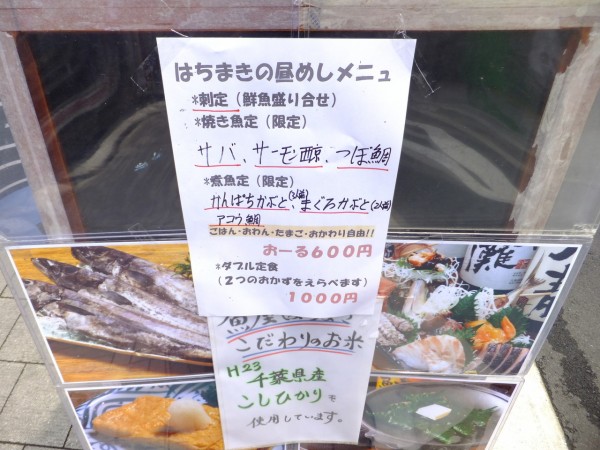 はちまきの昼めしメニュ
*刺定（鮮魚盛り合せ）
*焼き魚定（限定）
サバ、サーモン西京、つぼ鯛
*煮魚定（限定）
かんぱちかぶと、まぐろかぶと
アコウ鯛
ごはん・おわん・たまご・おかわり自由!!
おーる600円
*ダブル定食
（2つのおかずをえらべます）
1000円
こだわりのお米
H23
千葉県産
こしひかりを
使用しています。
灘